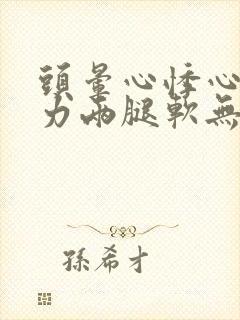 頭暈心悸心
力兩腿軟無
孫希才